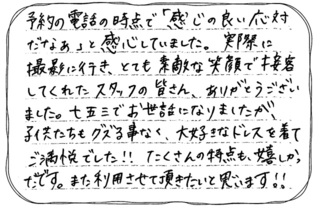 予約の電話の時点で「感じの良い応対
だなぁ」と感じていました。実際に
撮影に行き、とても素敵な笑顔で接客
してくれたスタッフの皆さん、ありがとうござい
ました。七五三でお世話になりましたが、
子供たちもグズる事なく、大好きなドレスを着て
ご満悦でした!! たくさんの特点も、嬉しかっ
たです。また利用させて頂きたいと思います!!